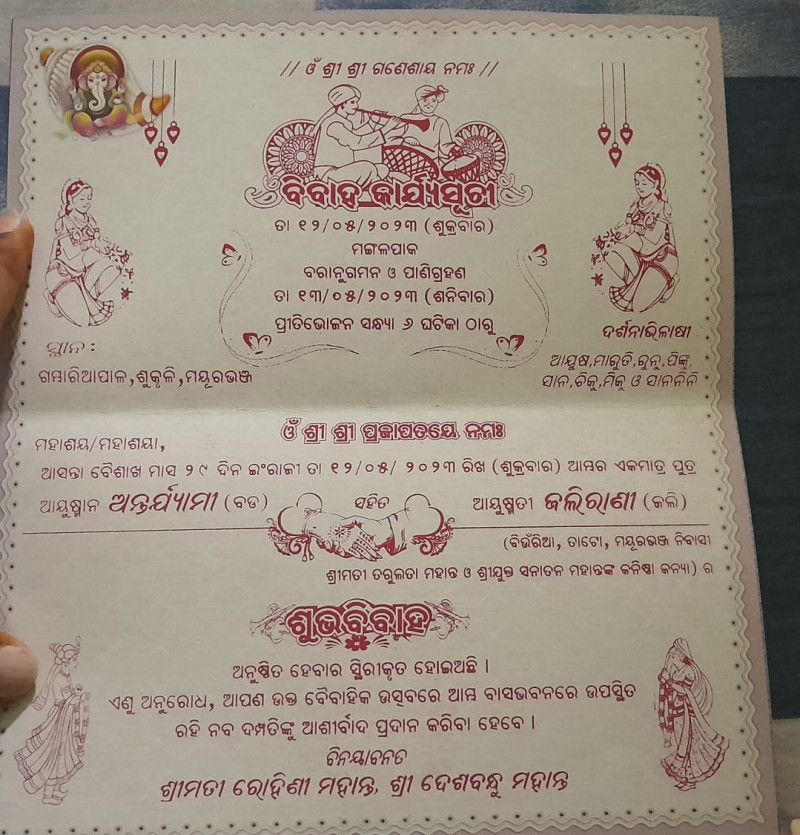 // ଓଁ ଶ୍ରୀ ଶ୍ରୀ ଗଣେଶାୟ ନମଃ //
ବିବାହ କାର୍ଯ୍ୟସୂଚୀ
ତା ୧୨/୦୫/୨୦୨୩ (ଶୁକ୍ରବାର)
ମଙ୍ଗଳପାକ
ବରାନୁଗମନ ଓ ପାଣିଗ୍ରହଣ
ତା ୧୩/୦୫/୨୦୨୩ (ଶନିବାର)
ପ୍ରୀତିଭୋଜନ ସନ୍ଧ୍ୟା ୬ ଘଟିକା ଠାରୁ
ସ୍ଥାନ :
ଗମ୍ଭାରିଆପାଳ,ଶୁକୃଳି,ମୟୂରଭଞ୍ଜ
ଦର୍ଶନାଭିଳାଷୀ
ଆୟୁଷ,ମାରୁତି,ରୁନୁ,ପିଙ୍କୁ,
ସାନ,ଚିକୁ,ମିକୁ ଓ ସାନନିନି
ଓଁ ଶ୍ରୀ ଶ୍ରୀ ପ୍ରଜାପତୟେ ନମଃ
ମହାଶୟ/ମହାଶୟା,
ଆସନ୍ତା ବୈଶାଖ ମାସ ୨୯ ଦିନ ଇଂରାଜୀ ତା ୧୨/୦୫/ ୨୦୨୩ ରିଖ (ଶୁକ୍ରବାର) ଆମ୍ଭର ଏକମାତ୍ର ପୁତ୍ର
ଆୟୁଷ୍ମାନ ଅନ୍ତର୍ଯ୍ୟାମୀ (ବଡ) ସହିତ ଆୟୁଷ୍ମତୀ ଜଲିରାଣୀ (କଲି)
(ବିଉଁରିଆ, ତାଟୋ, ମୟୂରଭଞ୍ଜ ନିବାସୀ
ଶ୍ରୀମତୀ ତରୁଲତା ମହାନ୍ତ ଓ ଶ୍ରୀଯୁକ୍ତ ସନାତନ ମହାନ୍ତଙ୍କ କନିଷ୍ଠା କନ୍ୟା) ର
ଶୁଭବିବାହ
ଅନୁଷ୍ଠିତ ହେବାର ସ୍ଥିରୀକୃତ ହୋଇଅଛି ।
ଏଣୁ ଅନୁରୋଧ, ଆପଣ ଉକ୍ତ ବୈବାହିକ ଉତ୍ସବରେ ଆମ୍ଭ ବାସଭବନରେ ଉପସ୍ଥିତ
ରହି ନବ ଦମ୍ପତିଙ୍କୁ ଆଶୀର୍ବାଦ ପ୍ରଦାନ କରିବା ହେବେ ।
ବିନୟାବନତ
ଶ୍ରୀମତୀ ରୋହିଣୀ ମହାନ୍ତ, ଶ୍ରୀ ଦେଶବନ୍ଧୁ ମହାନ୍ତ